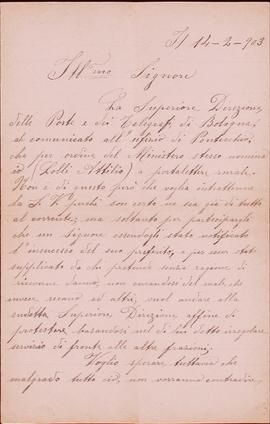 Il 14-2-903
Ill.mo Signore
La Superiore Direzione
delle Poste e dei Telegrafi di Bologna,
comunicato all'ufizio di Pontecchio,
che per ordine del Ministero stesso nomina
(Lolli Attilio) a portalettere rurale.
Non è di questo però che voglio intrattenere
la S. V. perchè son certo ne sia già di tutto
al corrente; ma soltanto per parteciparle
che un Signore essendogli stato notificato
l'insuccesso del suo preferito, e per non stato
supplicato da chi pretende senza ragione di
risentirne danno, non curandosi del male che
invece recano ad altri, vuol andare alla
sudetta Superiore Direzione affine di
protestare basandosi nel di lui detto irregolare
servizio di fronte alle altre frazioni.
Voglio sperare tuttavia che
malgrado tutto ciò, non vorranno contradire,